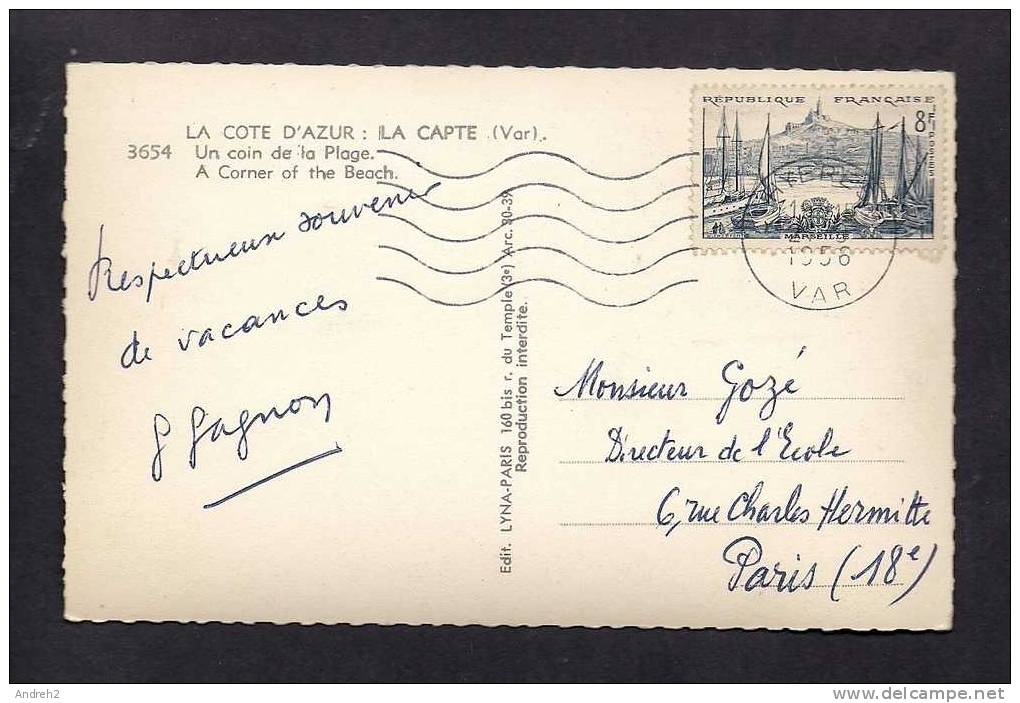 LA COTE D'AZUR : LA CAPTE (Var).
3654 Un coin de la Plage.
A Corner of the Beach.
Respectueux souvenir
de vacances
G Gagnon
Edit. LYNA-PARIS 160 bis r. du Temple (3e) Arc. 80-39
Reproduction interdite.
RÉPUBLIQUE FRANÇAISE
8F
POSTES
MARSEILLE
1956
VAR
Monsieur Gozé
Directeur de l'Ecole
6, rue Charles Hermitte
Paris (18e)
Andreh2
www.delcampe.net